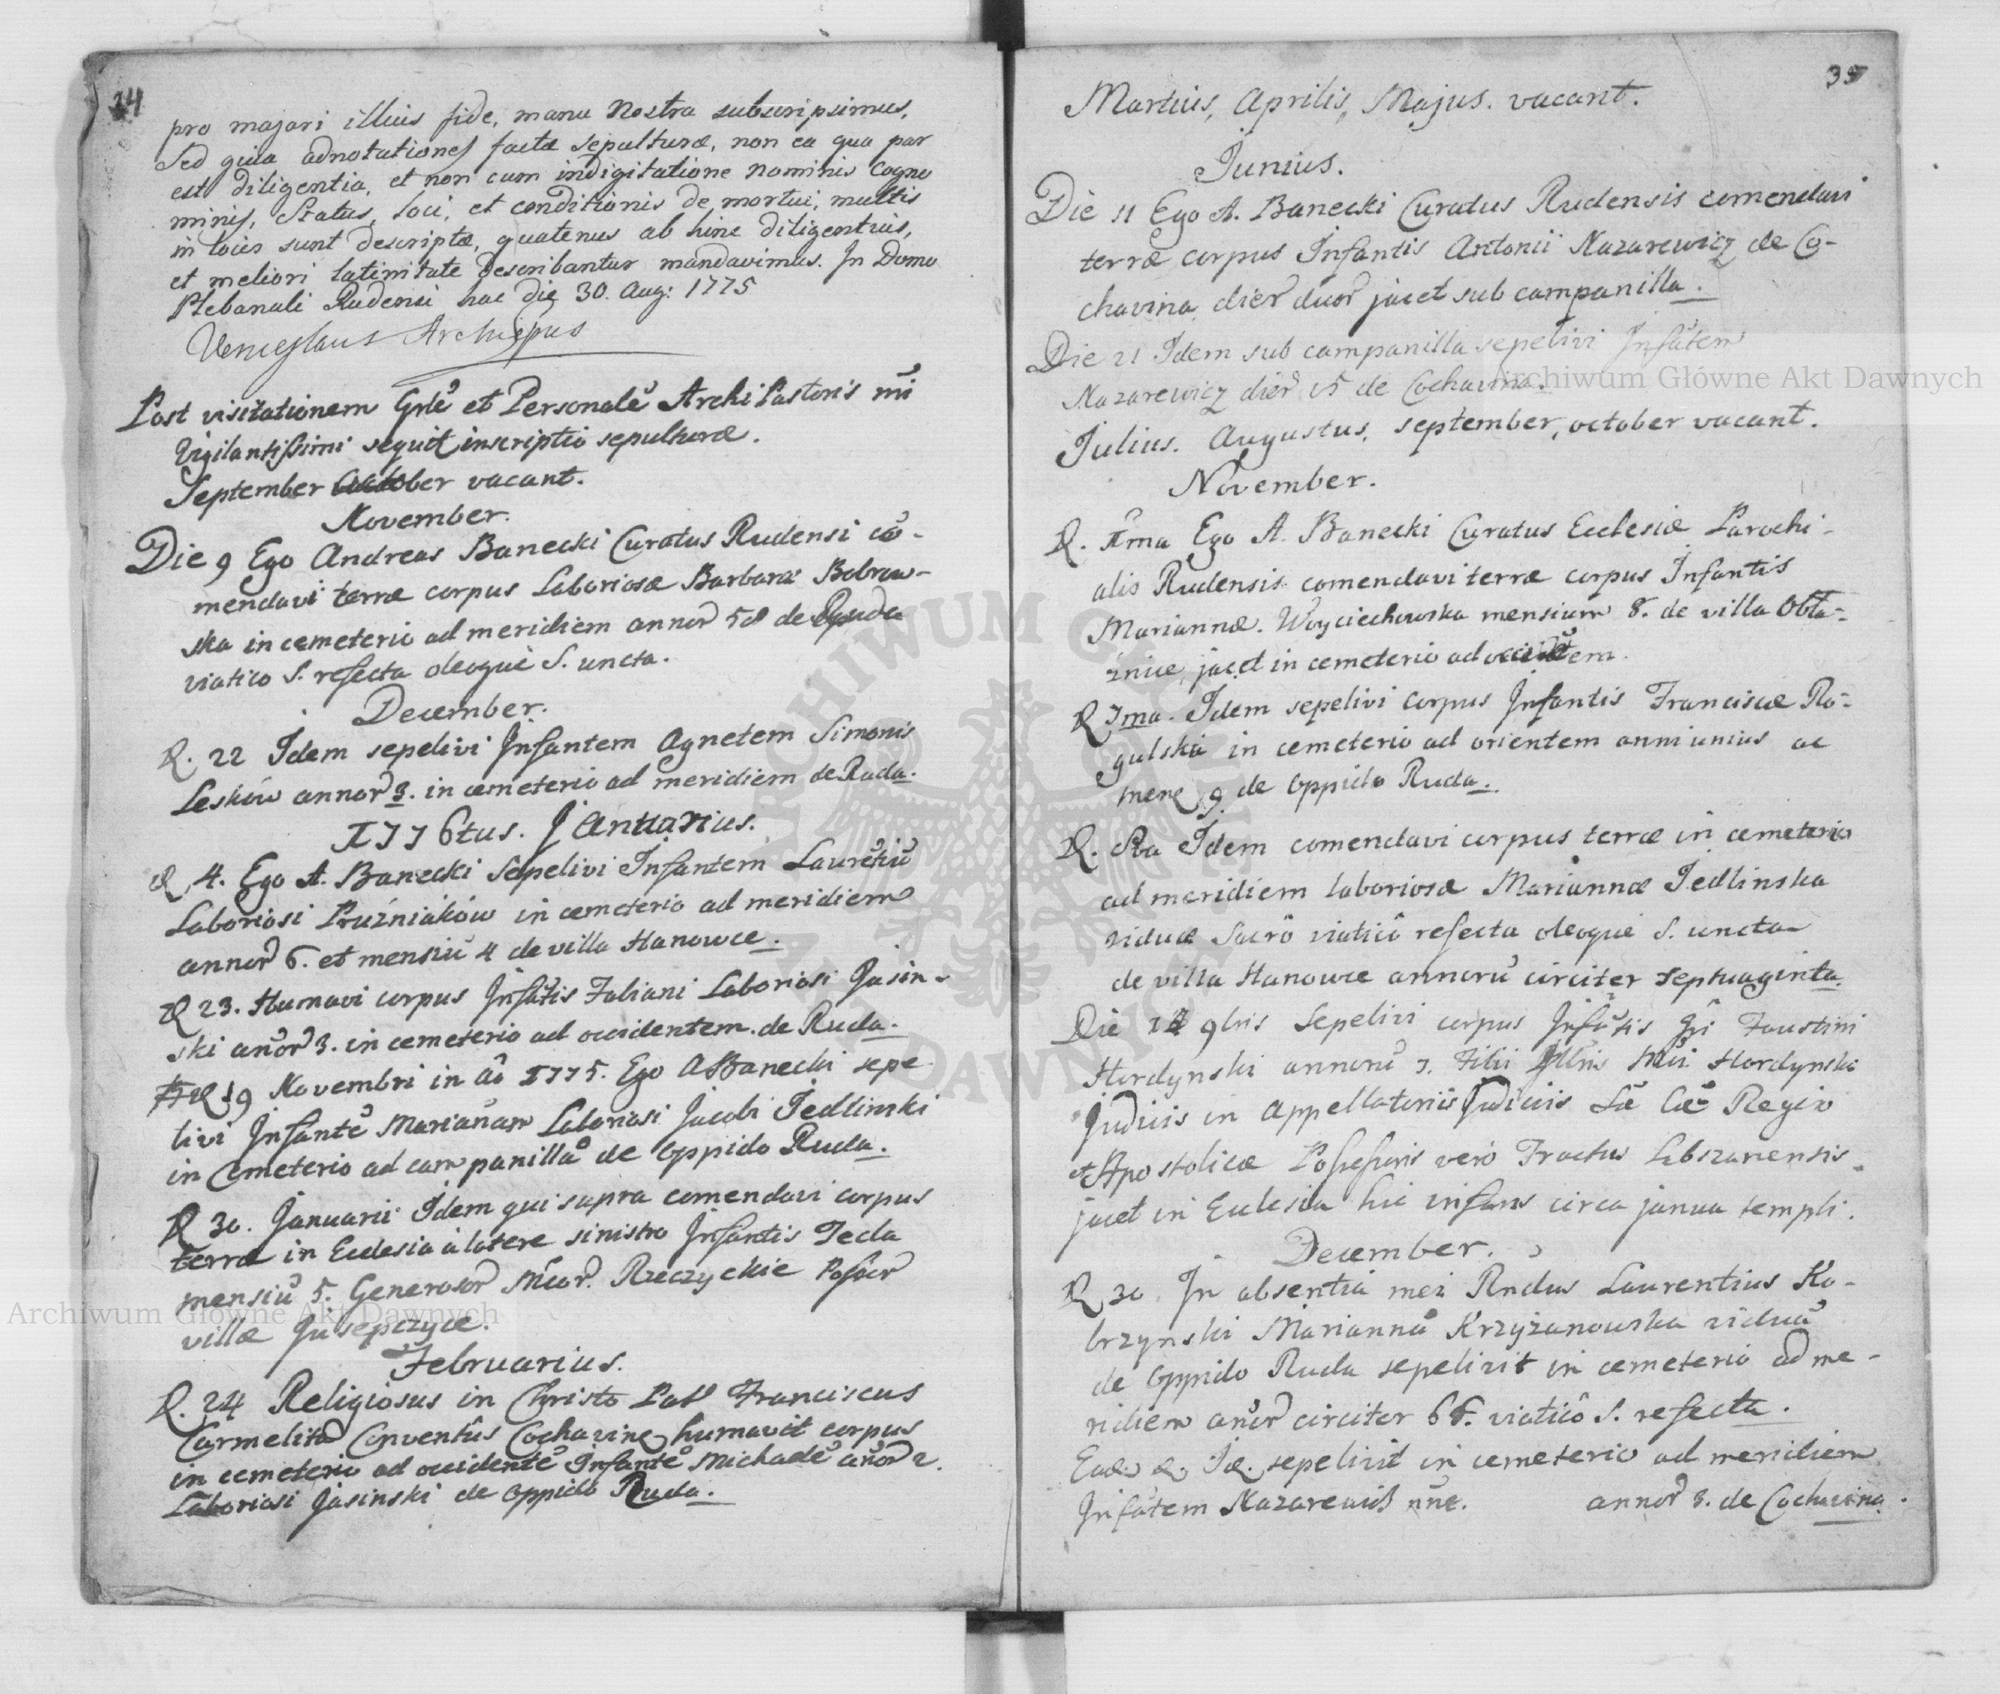 34
pro majori illius fide, manu Nostra subscripsimus,
Sed quia adnotationes factæ sepulturæ, non ea qua par
est diligentia, et non cum indigitatione nominis cogno
minis, Status, loci, et conditionis de mortui, multis
in locis sunt descriptæ, quatenus ab hinc diligentius,
et meliori latinitate describantur mandavimus. In Domo
Plebanali Rudensi hac die 30. Aug: 1775
Venceslaus Archieppus
Post visitationem Grlẽ et Personalẽ ArchiPastoris mi
Vigilantissimi sequit inscriptio sepulturæ.
September October vacant.
November.
Die 9 Ego Andreas Banecki Curatus Rudensi cõ-
mendavi terræ corpus Laboriosæ Barbaræ Bobrow-
ska in cemeterio ad meridiem annor 58 de Ruda
viatico S. refecta oleoque S. uncta.
December.
D. 22 Idem sepelivi Infantem Agnetem Simonis
Lesków annor 3. in cemeterio ad meridiem de Ruda.
1776tus. Januarius.
D 4. Ego A. Banecki Sepelivi Infantem Laurẽtiũ
Laboriosi Pruźniaków in cemeterio ad meridiem
annor 6. et mensiũ 4 de villa Hanowce.
D 23. Humavi corpus Infãtis Fabiani Laboriosi Jasin-
ski añor 3. in cemeterio ad occidentem de Ruda.
D 19 Novembri in Aõ 1775. Ego A Banecki sepe
livi Infantẽ Mariañam Laboriosi Jacobi Jedlinski
in Cemeterio ad campanillã de Oppido Ruda.
D 30. Januarii Idem qui supra comendavi corpus
terræ in Ecclesia a latere sinistro Infantis Tecla
mensiũ 5. Generosor Mcor. Rzeczyckie Possor
villæ Jusepczyce.
Februarius.
D. 24 Religiosus in Christo Pat Franciscus
Carmelita Conventûs Cochavinę humavit corpus
in cemeterio ad occidentẽ Infantẽ Michaelẽ añor 2.
Laboriosi Jasinski de Oppido Ruda.
35
Martius, Aprilis, Majus. vacant.
Junius.
Die 11 Ego A. Banecki Curatus Rudensis comendavi
terræ corpus Infantis Antonii Nazarewicz de Co-
chavina dier duor jacet sub campanilla.
Die 21 Idem sub campanilla sepelivi Infãtem
Nazarewicz dier 15 de Cochavina.
Julius. Augustus, september, october vacant.
November.
D. 1ma Ego A. Banecki Curatus Ecclesiæ Parochi-
alis Rudensis comendavi terræ corpus Infantis
Mariannæ. Woyciechowska mensium 8. de villa Obła-
źnice, jacet in cemeterio ad
D 7ma. Idem sepelivi corpus Infantis Franciscæ Ro-
gulskiı in cemeterio ad orientem anni unius ac
mene 9 de Oppido Ruda.
D. 8va Idem comendavi corpus terræ in cemeterio
ad meridiem laboriosæ Mariannæ Jedlinska
viduæ Sacrô viaticô refecta oleoque S. uncta
de villa Hanowce annorũ circiter septuaginta.
Die 9bris Sepelivi corpus Infãtis Faustini
Hordynski annorũ 7. Filii Hordynski
Judicis in Appellatoriis Judiciis Regio
Apostolicæ Possessoris vero Tractus Lubszanensis
jacet in Ecclesia hic infans circa janua templi.
December.
D 30. In absentia mei Rndus Laurentius Ko-
brzynski Mariannã Krzyżanowska viduã
de Oppido Ruda sepelivit in cemeterio ad me-
ridiem añor circiter 66. viaticô S. refecta.
Eadẽ d. Id. sepelivit in cemeterio ad meridiem
Infãtem Nazarewiß annor 3. de Cochavina.
Archiwum Główne Akt Dawnych
Archiwum Główne Akt Dawnych